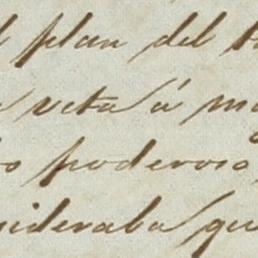 l plan del
veta á
o poderoso
sideraba qu